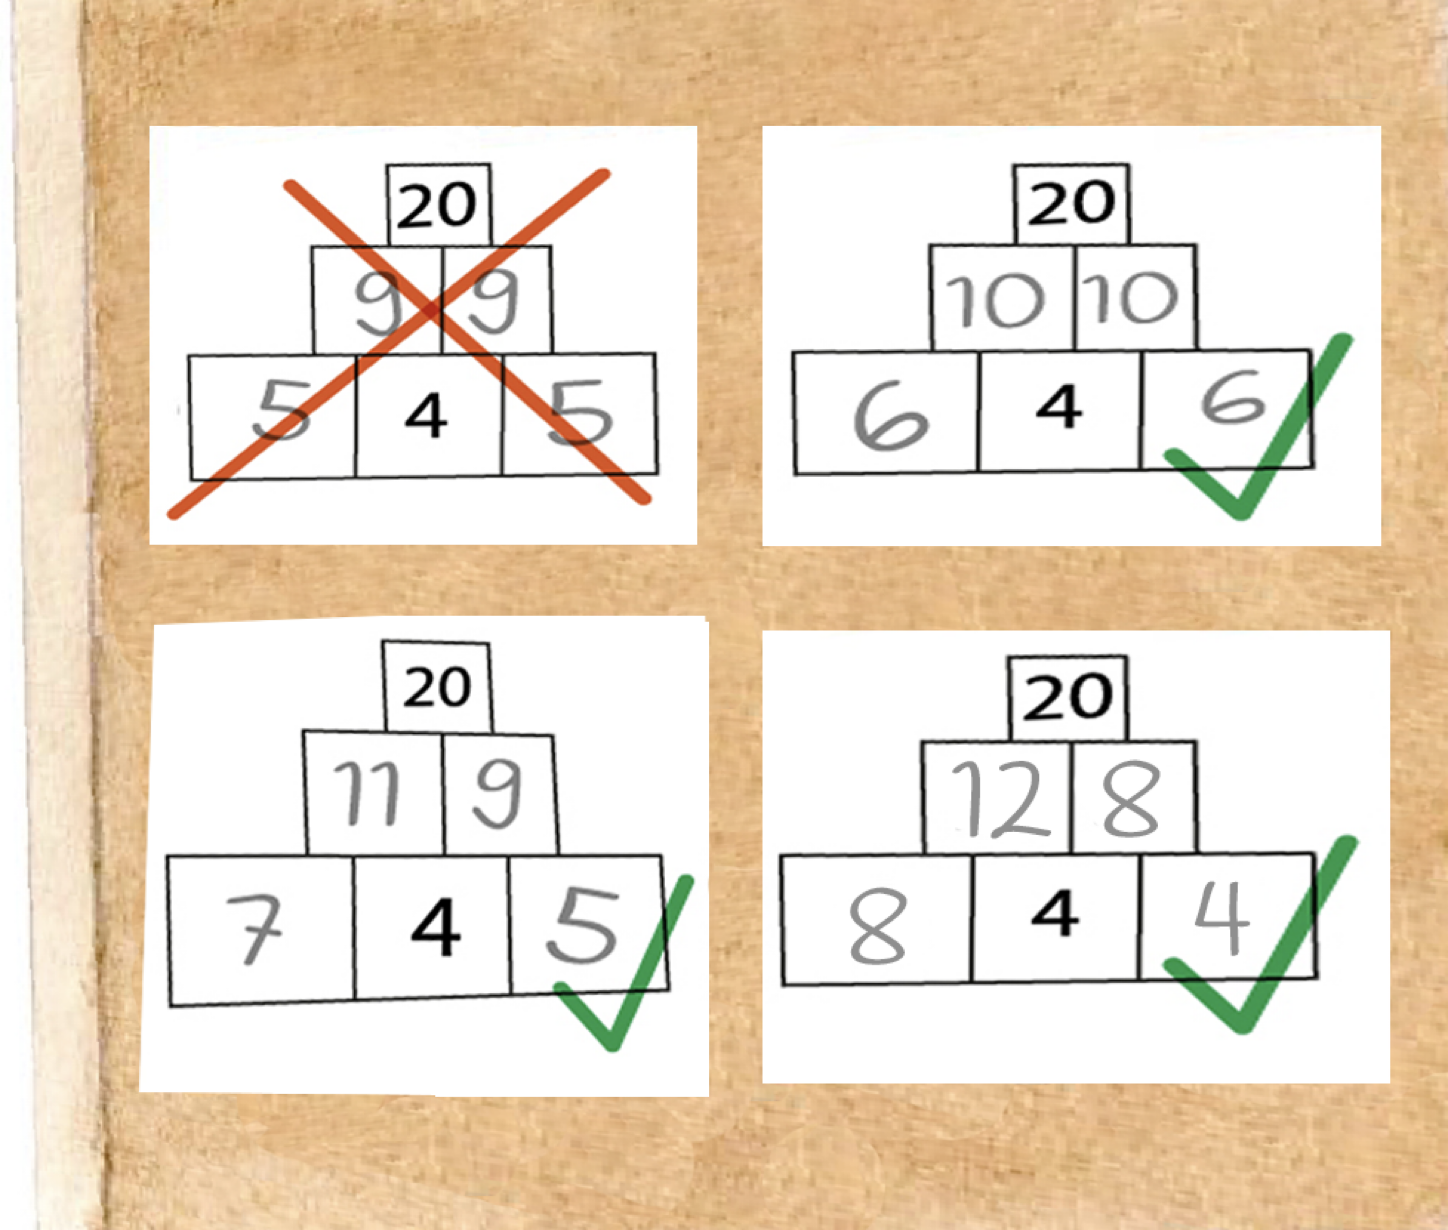 20
9 9
5 4 5
20
10 10
6 4 6
20
11 9
7 4 5
20
12 8
8 4 4